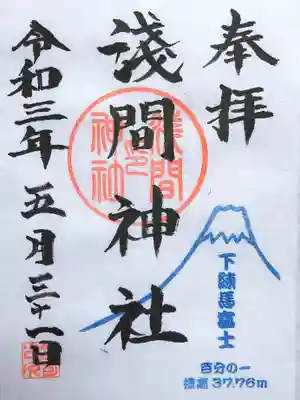 奉拝
淺間神社
令和三年五月三十一日
淺間
神社
下練馬富士
百分の一
標高37.76m